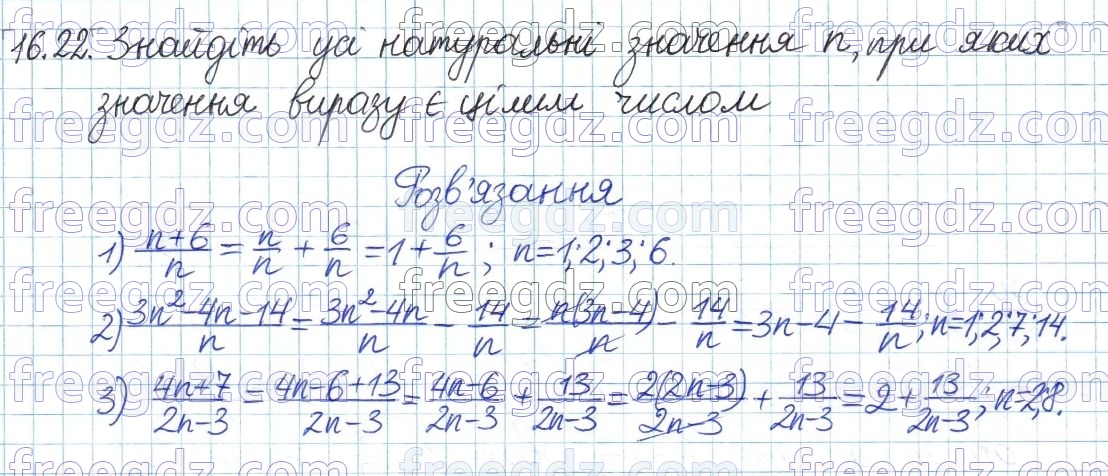 16.22. Знайдіть усі натуральні значення n, при яких
значення виразу є цілим числом
Розв'язання
1) (n+6)/n = n/n + 6/n = 1 + 6/n; n=1; 2; 3; 6.
2) (3n²-4n-14)/n = (3n²-4n)/n - 14/n = n(3n-4)/n - 14/n = 3n-4 - 14/n; n=1; 2; 7; 14.
3) (4n+7)/(2n-3) = (4n-6+13)/(2n-3) = (4n-6)/(2n-3) + 13/(2n-3) = 2(2n-3)/(2n-3) + 13/(2n-3) = 2 + 13/(2n-3); n=2,8.